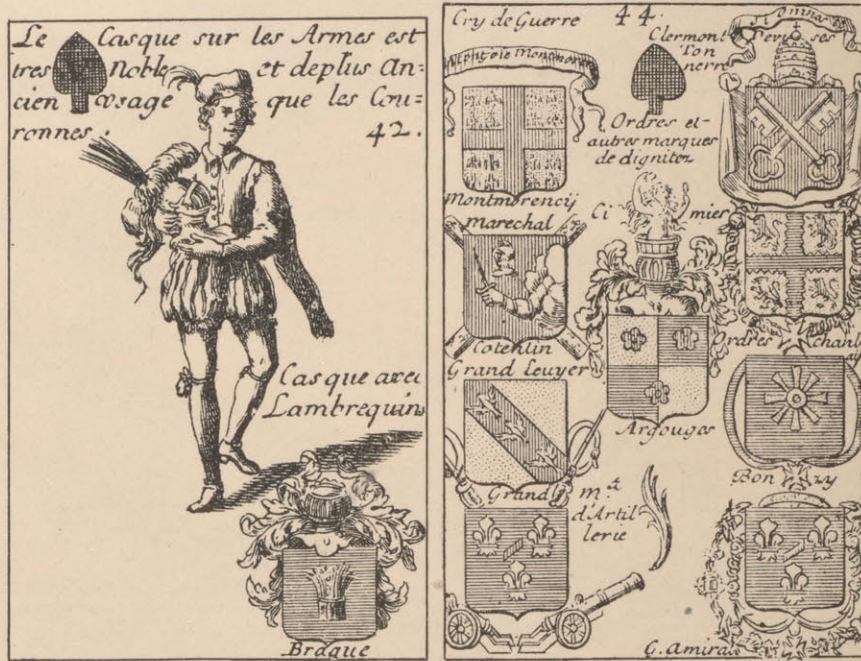 Le Casque sur les Armes est
tres Noble et deplus An=
cien vsage que les Cou=
ronnes.
42.
Casque avec
Lambrequins
Braque
Cry de Guerre 44.
Clermont
Ton
nerre
Si Omnes
Ordres et
autres marques
de dignitez
Montmorency
Marechal
Cimier
Cotentin
Grand Ecuyer
Ordres
Argouges
Bonzy
Grand m.e
d'Artil
lerie
G. Amiral